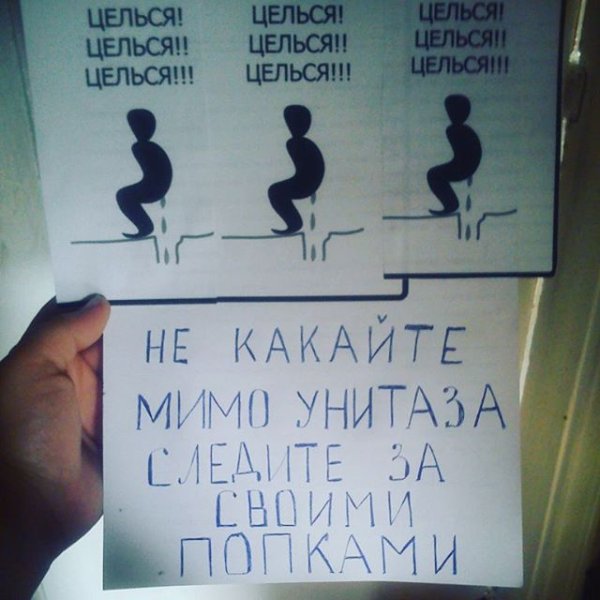 ЦЕЛЬСЯ!
ЦЕЛЬСЯ!!
ЦЕЛЬСЯ!!!
ЦЕЛЬСЯ!
ЦЕЛЬСЯ!!
ЦЕЛЬСЯ!!!
ЦЕЛЬСЯ!
ЦЕЛЬСЯ!!
ЦЕЛЬСЯ!!!
НЕ КАКАЙТЕ
МИМО УНИТАЗА
СЛЕДИТЕ ЗА
СВОИМИ
ПОПКАМИ